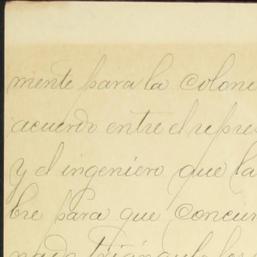 mente para la coloni
acuerdo entre el repres
y el ingeniero que la
bre para que concur
nado Triángulo los